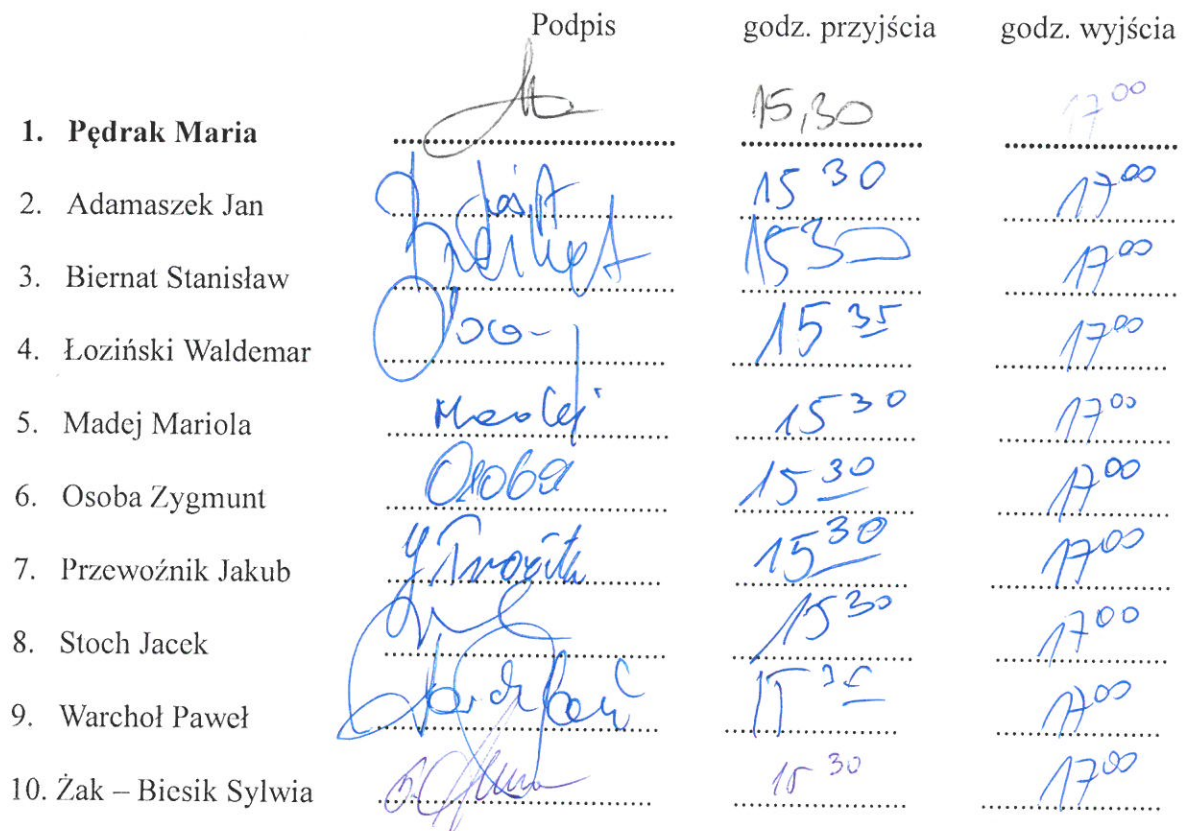 Podpis godz. przyjścia godz. wyjścia
1. Pędrak Maria 15,30 17 00
2. Adamaszek Jan 15 30 17 00
3. Biernat Stanisław 15 30 17 00
4. Łoziński Waldemar 15 35 17 00
5. Madej Mariola Madej 15 30 17 00
6. Osoba Zygmunt Osoba 15 30 17 00
7. Przewoźnik Jakub 15 30 17 00
8. Stoch Jacek 15 30 17 00
9. Warchoł Paweł 15 35 17 00
10. Żak – Biesik Sylwia 15 30 17 00